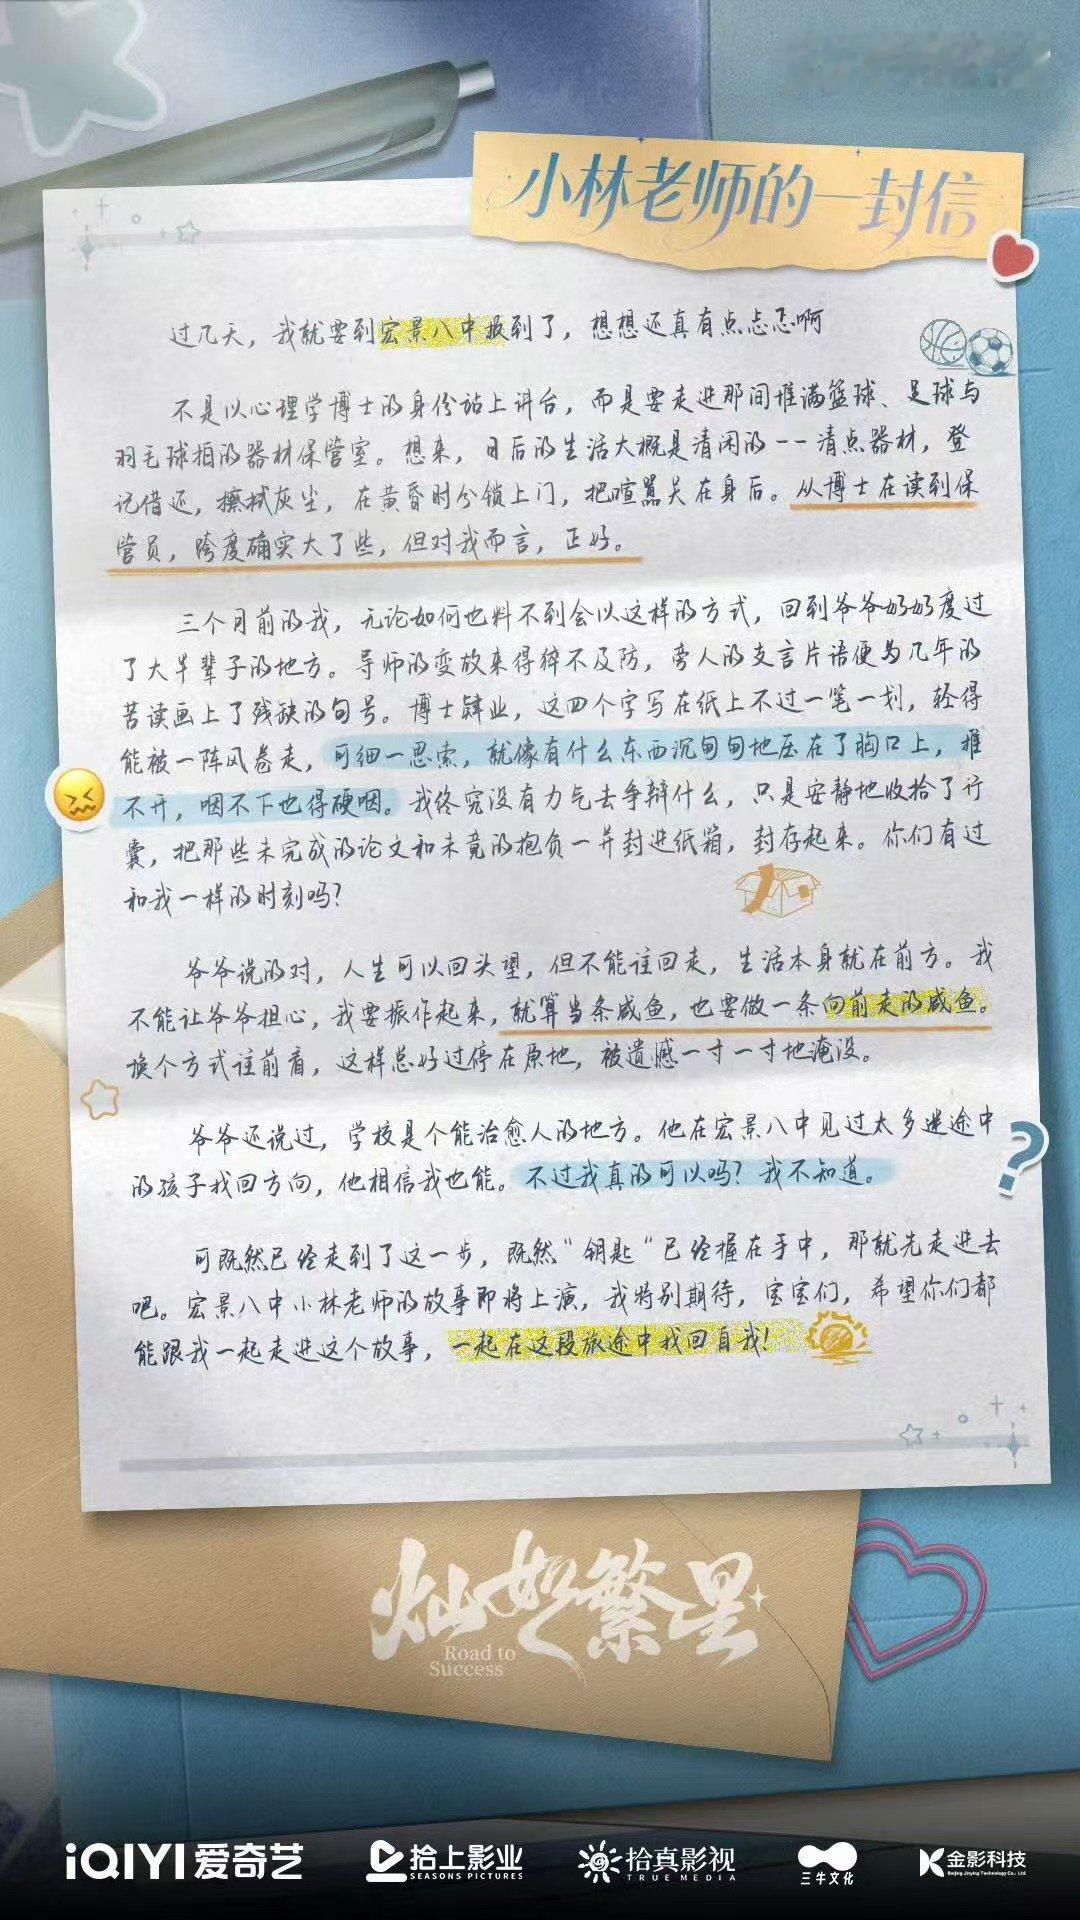 小林老师的一封信
过几天，我就要到宏景八中报到了，想想还真有点忐忑啊
不是以心理学博士的身份站上讲台，而是要走进那间堆满篮球、足球与
羽毛球拍的器材保管室。想来，日后的生活大概是清闲的--清点器材，登
记借还，擦拭灰尘，在黄昏时分锁上门，把喧嚣关在身后。从博士在读到保
管员，跨度确实大了些，但对我而言，正好。
三个月前的我，无论如何也料不到会以这样的方式，回到爷爷奶奶度过
了大半辈子的地方。导师的变故来得猝不及防，旁人的支言片语便为几年的
苦读画上了残缺的句号。博士肄业，这四个字写在纸上不过一笔一划，轻得
能被一阵风卷走，可细一思索，就像有什么东西沉甸甸地压在了胸口上，推
不开，咽不下也得硬咽。我终究没有力气去争辩什么，只是安静地收拾了行
囊，把那些未完成的论文和未竟的抱负一并封进纸箱，封存起来。你们有过
和我一样的时刻吗？
爷爷说的对，人生可以回头望，但不能往回走，生活本身就在前方。我
不能让爷爷担心，我要振作起来，就算当条咸鱼，也要做一条向前走的咸鱼。
换个方式往前看，这样总好过停在原地，被遗憾一寸一寸地淹没。
爷爷还说过，学校是个能治愈人的地方。他在宏景八中见过太多迷途中
的孩子找回方向，他相信我也能。不过我真的可以吗？我不知道。
可既然已经走到了这一步，既然“钥匙“已经握在手中，那就先走进去
吧。宏景八中小林老师的故事即将上演，我特别期待，宝宝们，希望你们都
能跟我一起走进这个故事，一起在这段旅途中找回自我！
灿如繁星
Road to
Success
iQIYI 爱奇艺
拾上影业
SEASONS PICTURES
拾真影视
TRUE MEDIA
三牛文化
金影科技
Beijing Jinying Technology Co., Ltd